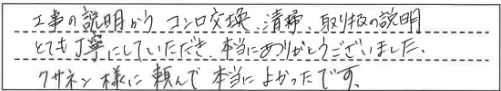 工事の説明から コンロ交換、清掃、取り扱の説明
とても丁寧にしていただき、本当にありがとうございました。
クサネン様に頼んで本当によかったです。